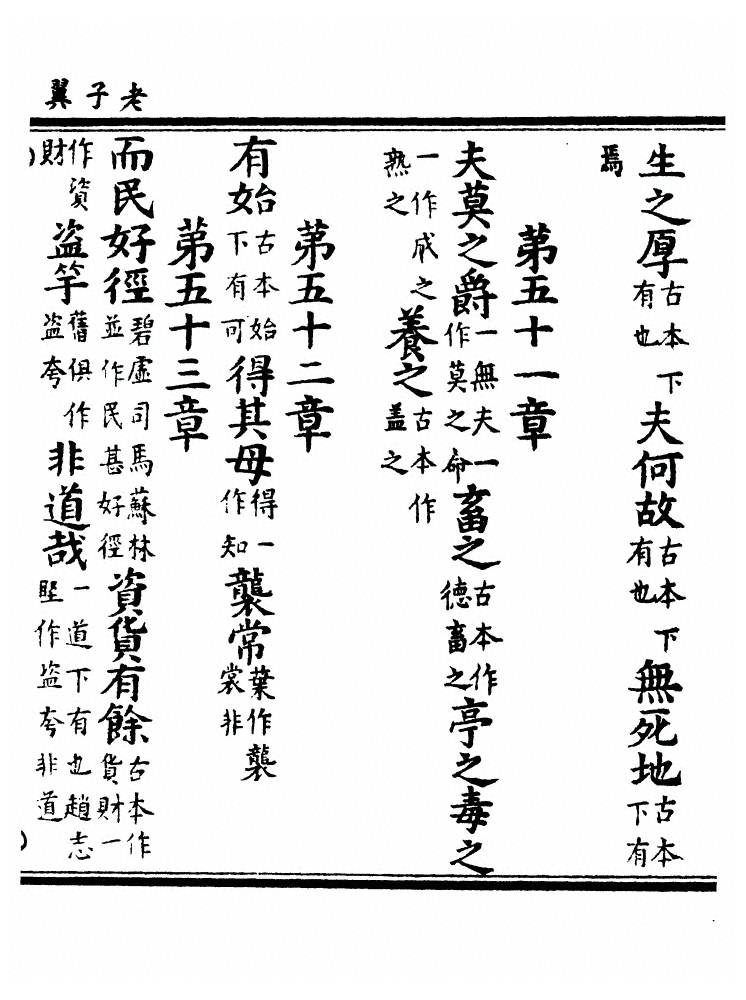 老子翼
生之厚古本下有也夫何故古本下有也無死地古本下有
焉
第五十一章
夫莫之爵一無夫一作莫之命畜之古本作德畜之亭之毒之
一作成之熟之養之古本作盖之
第五十二章
有始古本始下有可得其母得一作知襲常葉作襲裳非
第五十三章
而民好徑碧虛司馬蘇林並作民甚好徑資貨有餘古本作貨財一
作資財盗竽舊俱作盗夸非道哉一道下有也趙志堅作盗夸非道